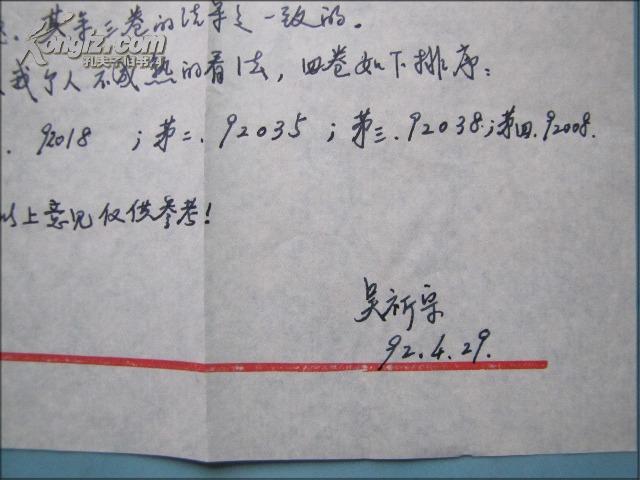 其余三卷的结果是一致的。
我个人不成熟的看法,四卷如下排序:
92018 ;第二.92035 ;第三.92038;第四.92008.
以上意见仅供参考!
吴祈宗
92.4.29.
Kongfz.com
孔夫子旧书网